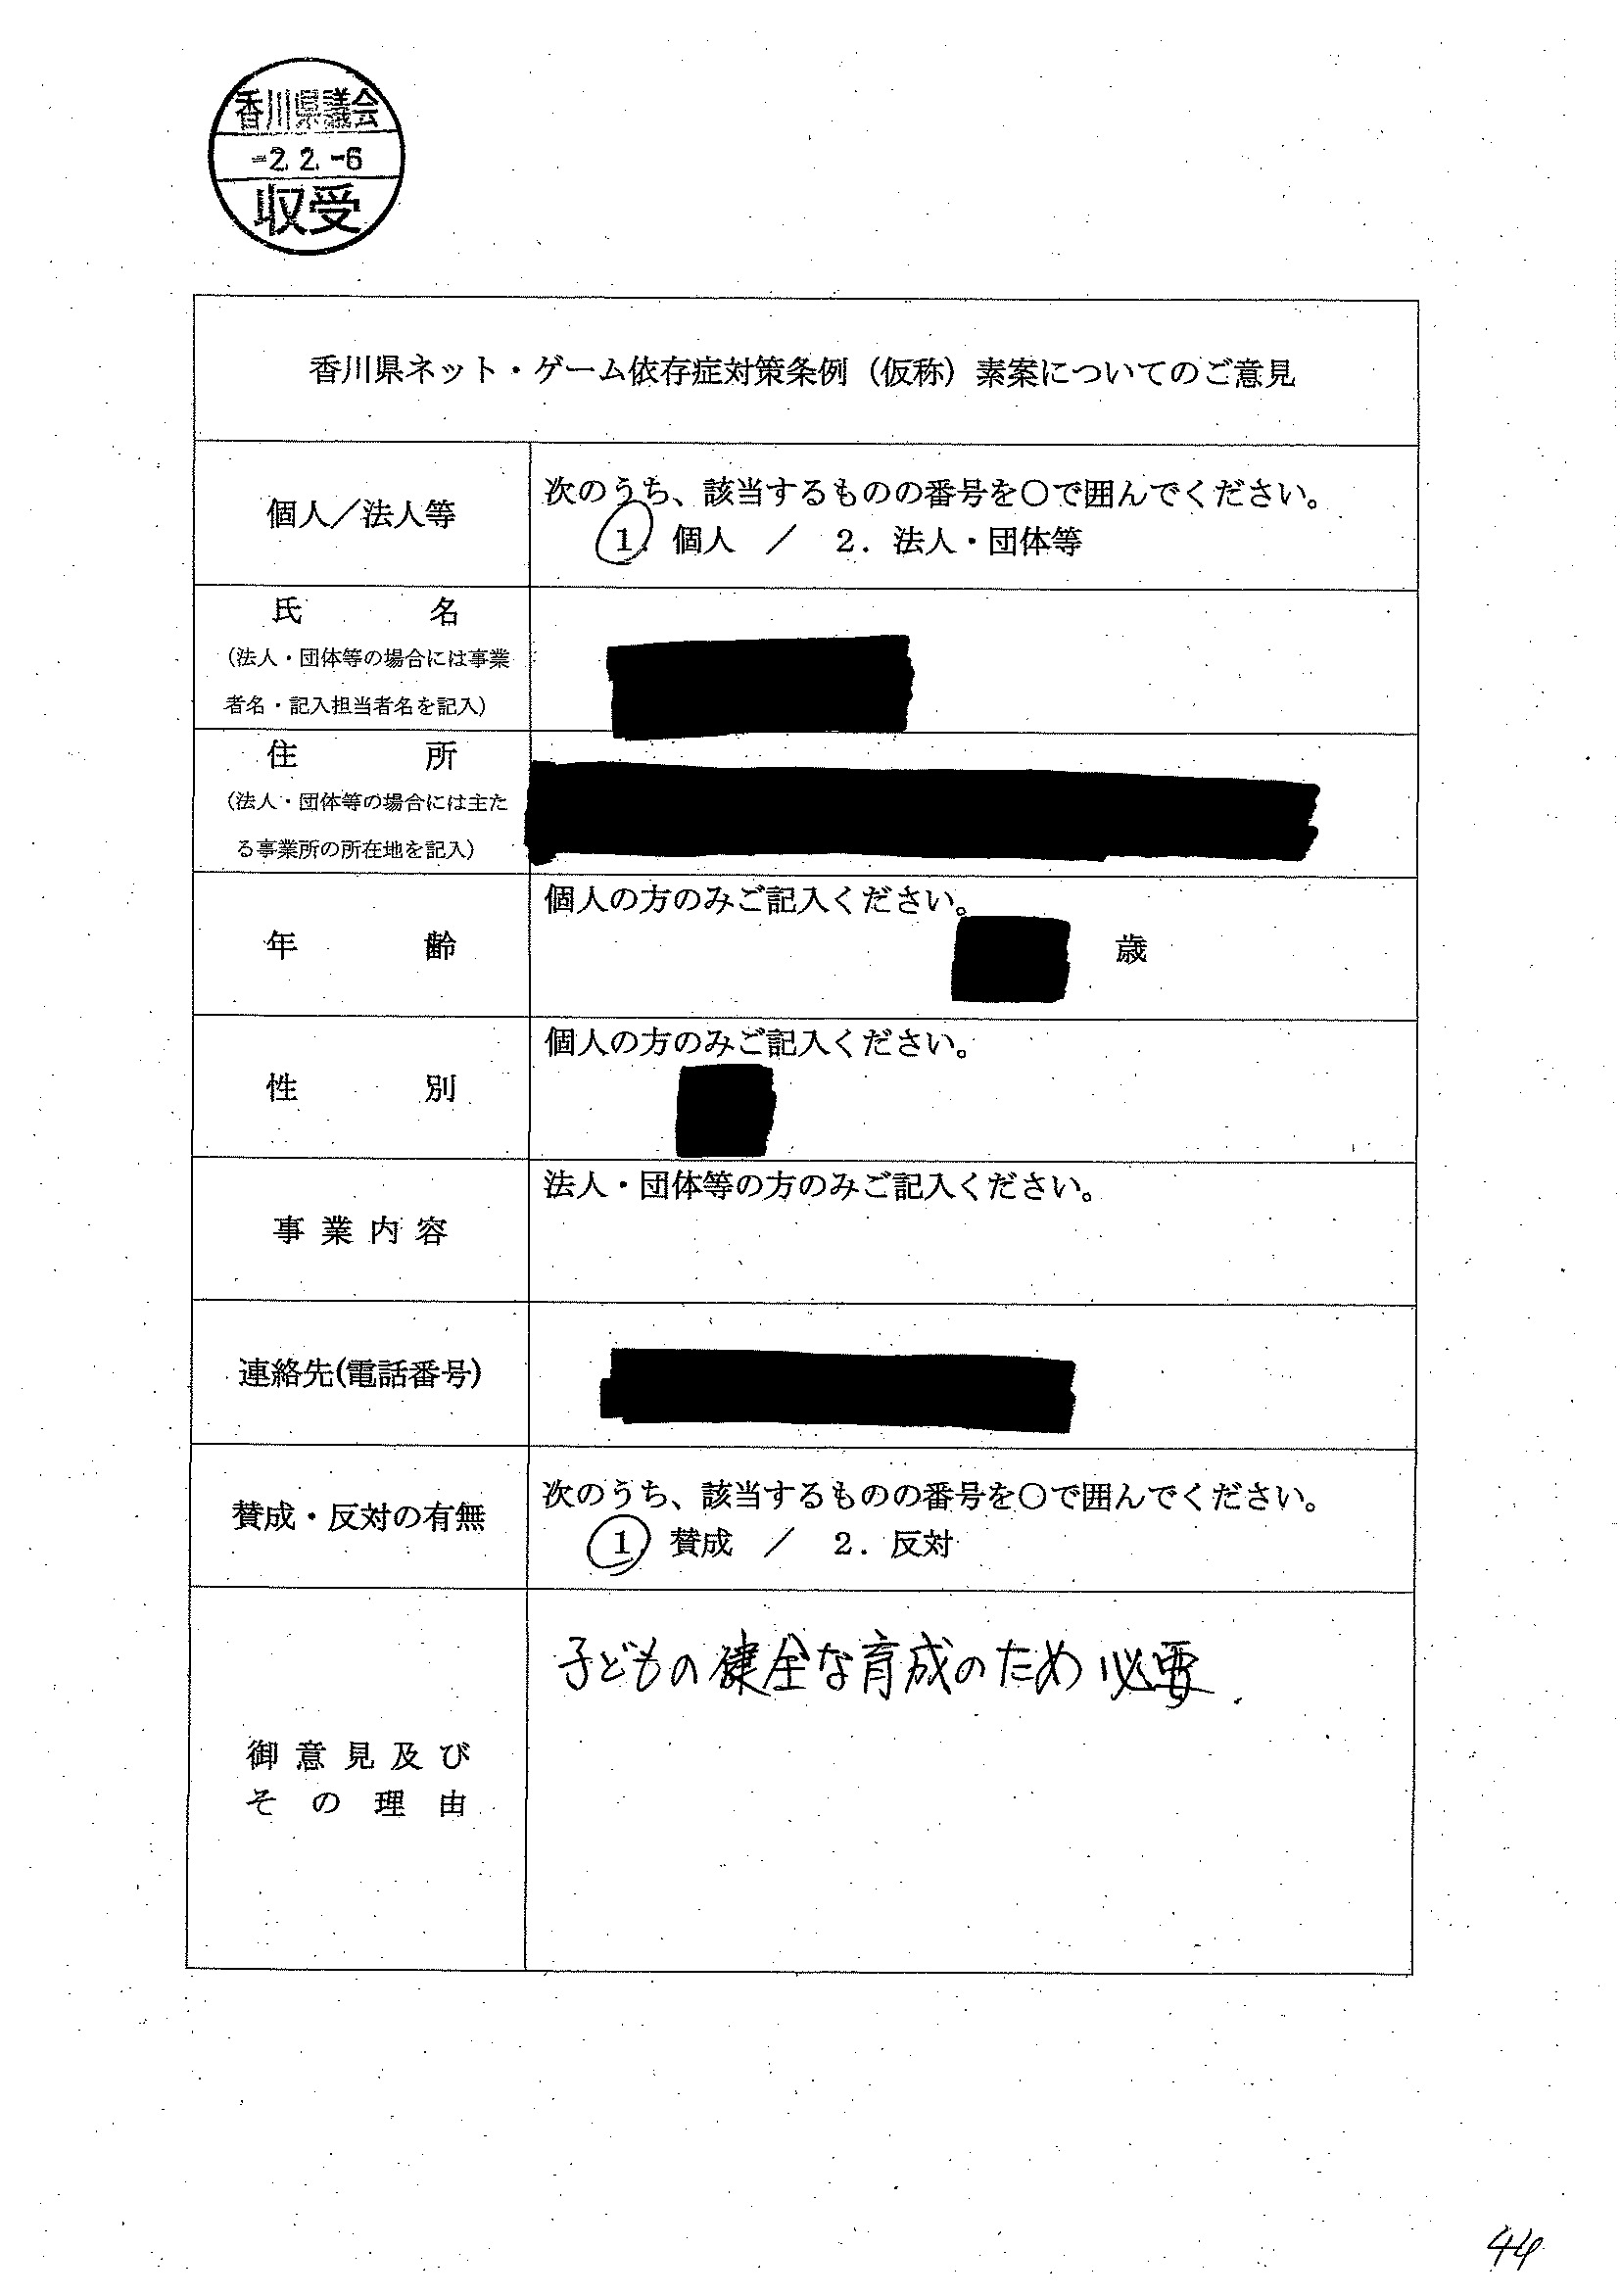 香川県議会
-2.2.-6
収受
香川県ネット・ゲーム依存症対策条例（仮称）素案についてのご意見
個人／法人等
次のうち、該当するものの番号を○で囲んでください。
1. 個人 ／ 2. 法人・団体等
氏名
（法人・団体等の場合には事業
者名・記入担当者名を記入）
住所
（法人・団体等の場合には主た
る事業所の所在地を記入）
年齢
個人の方のみご記入ください。
歳
性別
個人の方のみご記入ください。
事業内容
法人・団体等の方のみご記入ください。
連絡先(電話番号)
賛成・反対の有無
次のうち、該当するものの番号を○で囲んでください。
1 賛成 ／ 2. 反対
御意見及び
その理由
子どもの健全な育成のため必要.
44